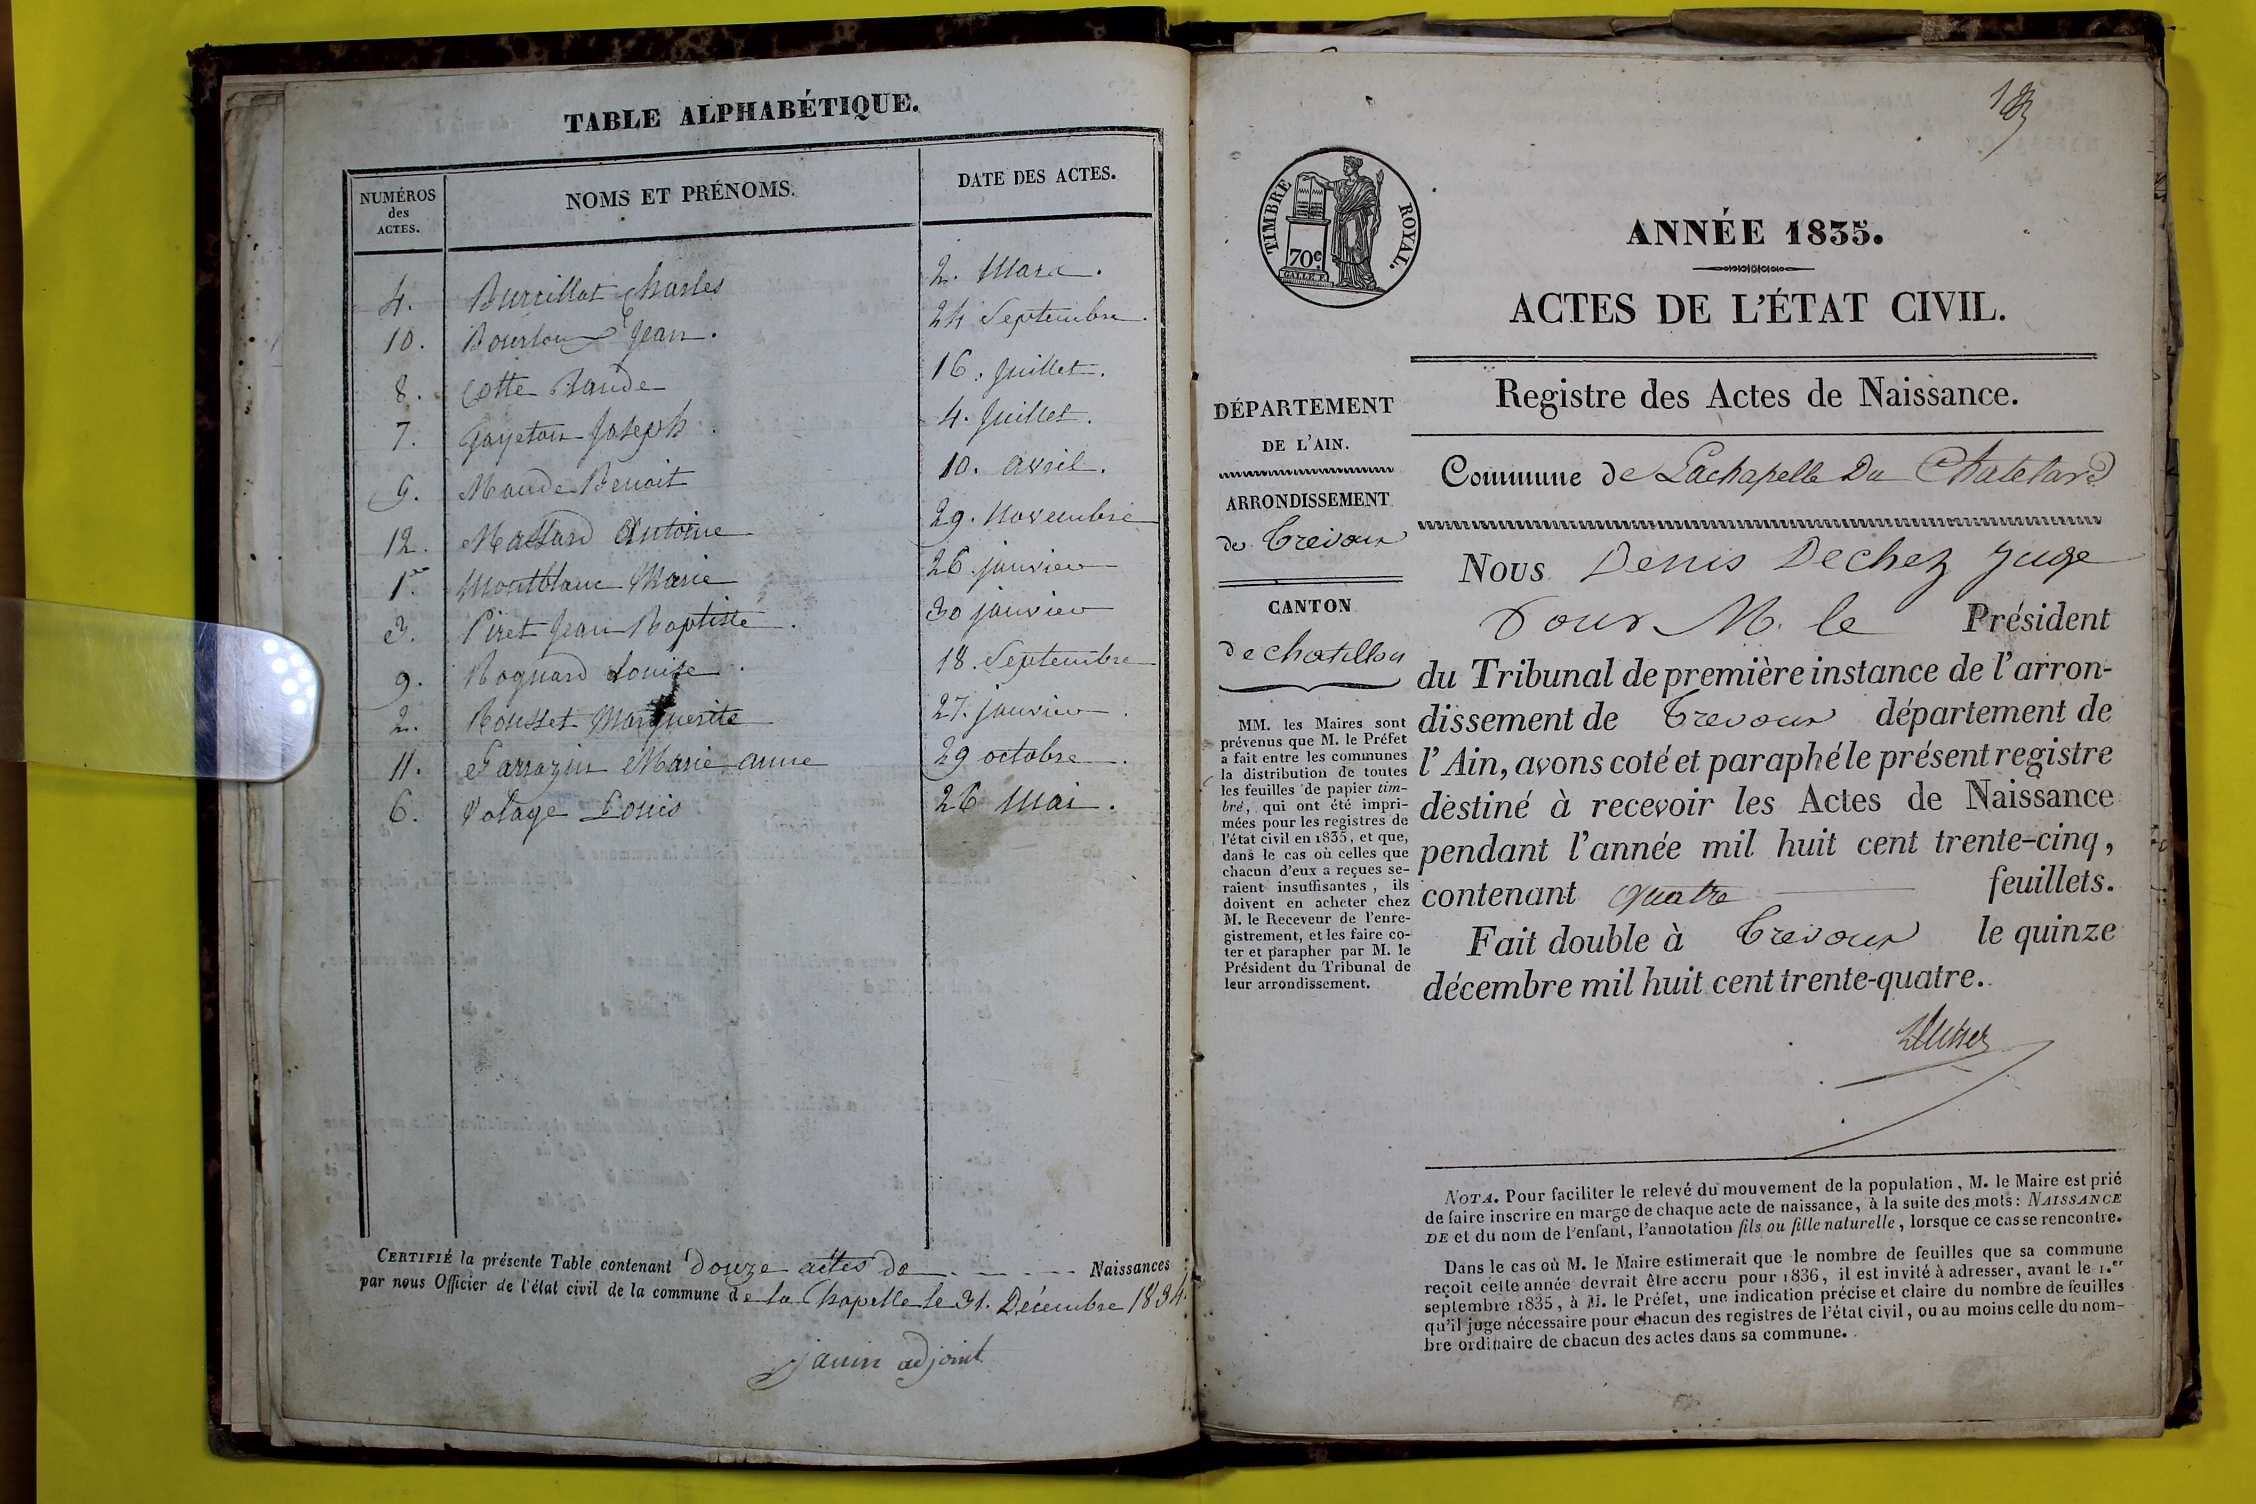 TABLE ALPHABÉTIQUE.
NUMÉROS
des
ACTES.
NOMS ET PRÉNOMS.
DATE DES ACTES.
4. Burcillot Charles 2. Mars.
10. Jean. 24 Septembre.
8. Cotte Claude 16. Juillet.
7. Gayeton Joseph 4. Juillet.
5. Benoit 10. avril.
12. Massard Antoine 29. Novembre
1er Montblanc Marie 26 janvier
3. Piret Jean Baptiste. 30 janvier
9. Rognard Louise. 18. Septembre
2. Rousset Marguerite 27. janvier.
11. Sarrazin Marie anne 29 octobre.
6. Volage Louis 26 Mai.
CERTIFIÉ la présente Table contenant douze actes de Naissances
par nous Officier de l'état civil de la commune de la Chapelle le 31. Décembre 1834.
janin adjoint
TIMBRE ROYAL.
70c
ANNÉE 1835.
ACTES DE L'ÉTAT CIVIL.
Registre des Actes de Naissance.
DÉPARTEMENT
DE L'AIN.
ARRONDISSEMENT
de Trevoux
CANTON
de chatillon
MM. les Maires sont
prévenus que M. le Préfet
a fait entre les communes
la distribution de toutes
les feuilles de papier tim-
bré, qui ont été impri-
mées pour les registres de
l'état civil en 1835, et que,
dans le cas où celles que
chacun d'eux a reçues se-
raient insuffisantes, ils
doivent en acheter chez
M. le Receveur de l'enre-
gistrement, et les faire co-
ter et parapher par M. le
Président du Tribunal de
leur arrondissement.
Commune de Lachapelle Du Chatelard
Nous Denis Dechez Juge
Pour M. le Président
du Tribunal de première instance de l'arron-
dissement de Trevoux département de
l'Ain, avons coté et paraphé le présent registre
destiné à recevoir les Actes de Naissance
pendant l'année mil huit cent trente-cinq,
contenant quatre feuillets.
Fait double à Trevoux le quinze
décembre mil huit cent trente-quatre.
NOTA. Pour faciliter le relevé du mouvement de la population, M. le Maire est prié
de faire inscrire en marge de chaque acte de naissance, à la suite des mots: NAISSANCE
DE et du nom de l'enfant, l'annotation fils ou fille naturelle, lorsque ce cas se rencontre.
Dans le cas où M. le Maire estimerait que le nombre de feuilles que sa commune
reçoit cette année devrait être accru pour 1836, il est invité à adresser, avant le 1.er
septembre 1835, à M. le Préfet, une indication précise et claire du nombre de feuilles
qu'il juge nécessaire pour chacun des registres de l'état civil, ou au moins celle du nom-
bre ordinaire de chacun des actes dans sa commune.